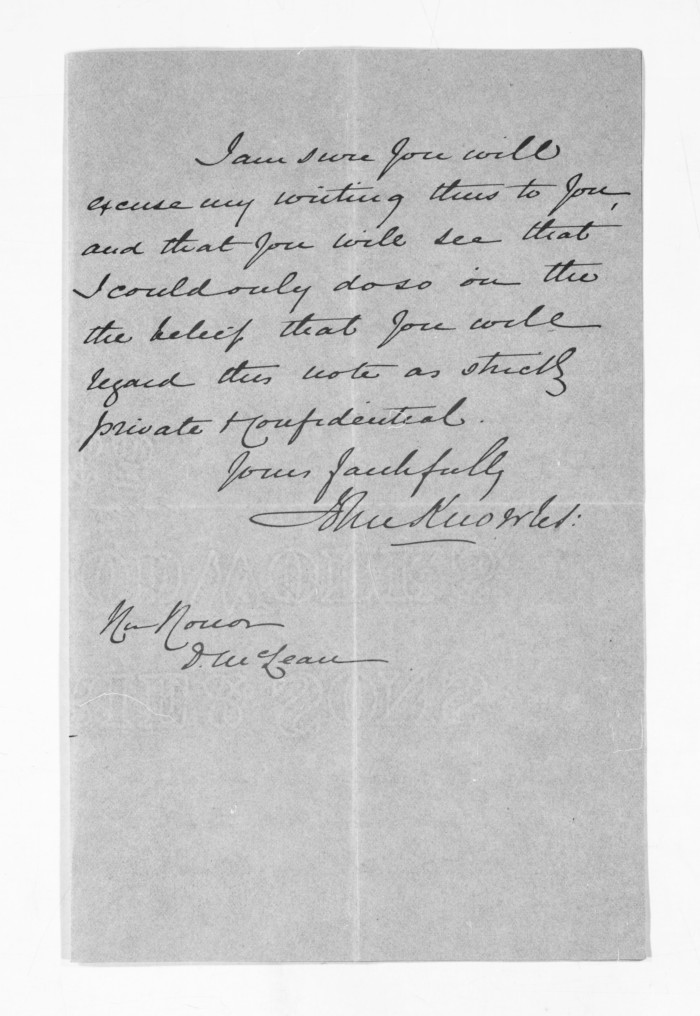 I am sure you will
excuse my writing thus to you,
and that you will see that
I could only do so on the
the belief that you will
regard this note as strictly
private & confidential.
Yours faithfully
John Knowles.
His Honor
D. McLean